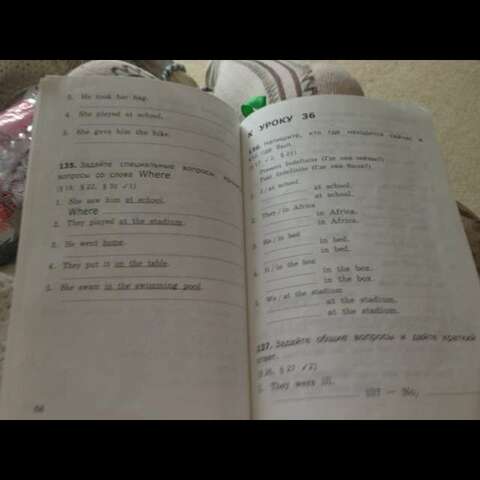 3. He took her bag.
4. She played at school.
5. She gave him the bike.
135. Задайте специальные вопросы, начиная
вопросы со слова Where
1. She saw him at school.
Where
2. They played at the stadium.
3. He went home.
4. They put it on the table.
5. She swam in the swimming pool.
68
К УРОКУ 36
136. Напишите, кто где находится сейчас и
где был.
Present Indefinite (Где они сейчас?)
Past Indefinite (Где они были?)
1. I / at school
at school.
at school.
2. They / in Africa
in Africa.
in Africa.
3. He / in bed
in bed.
in bed.
4. It / in the box
in the box.
in the box.
5. We / at the stadium
at the stadium.
at the stadium.
137. Задайте общие вопросы и дайте краткий
ответ.
1. They were ill.